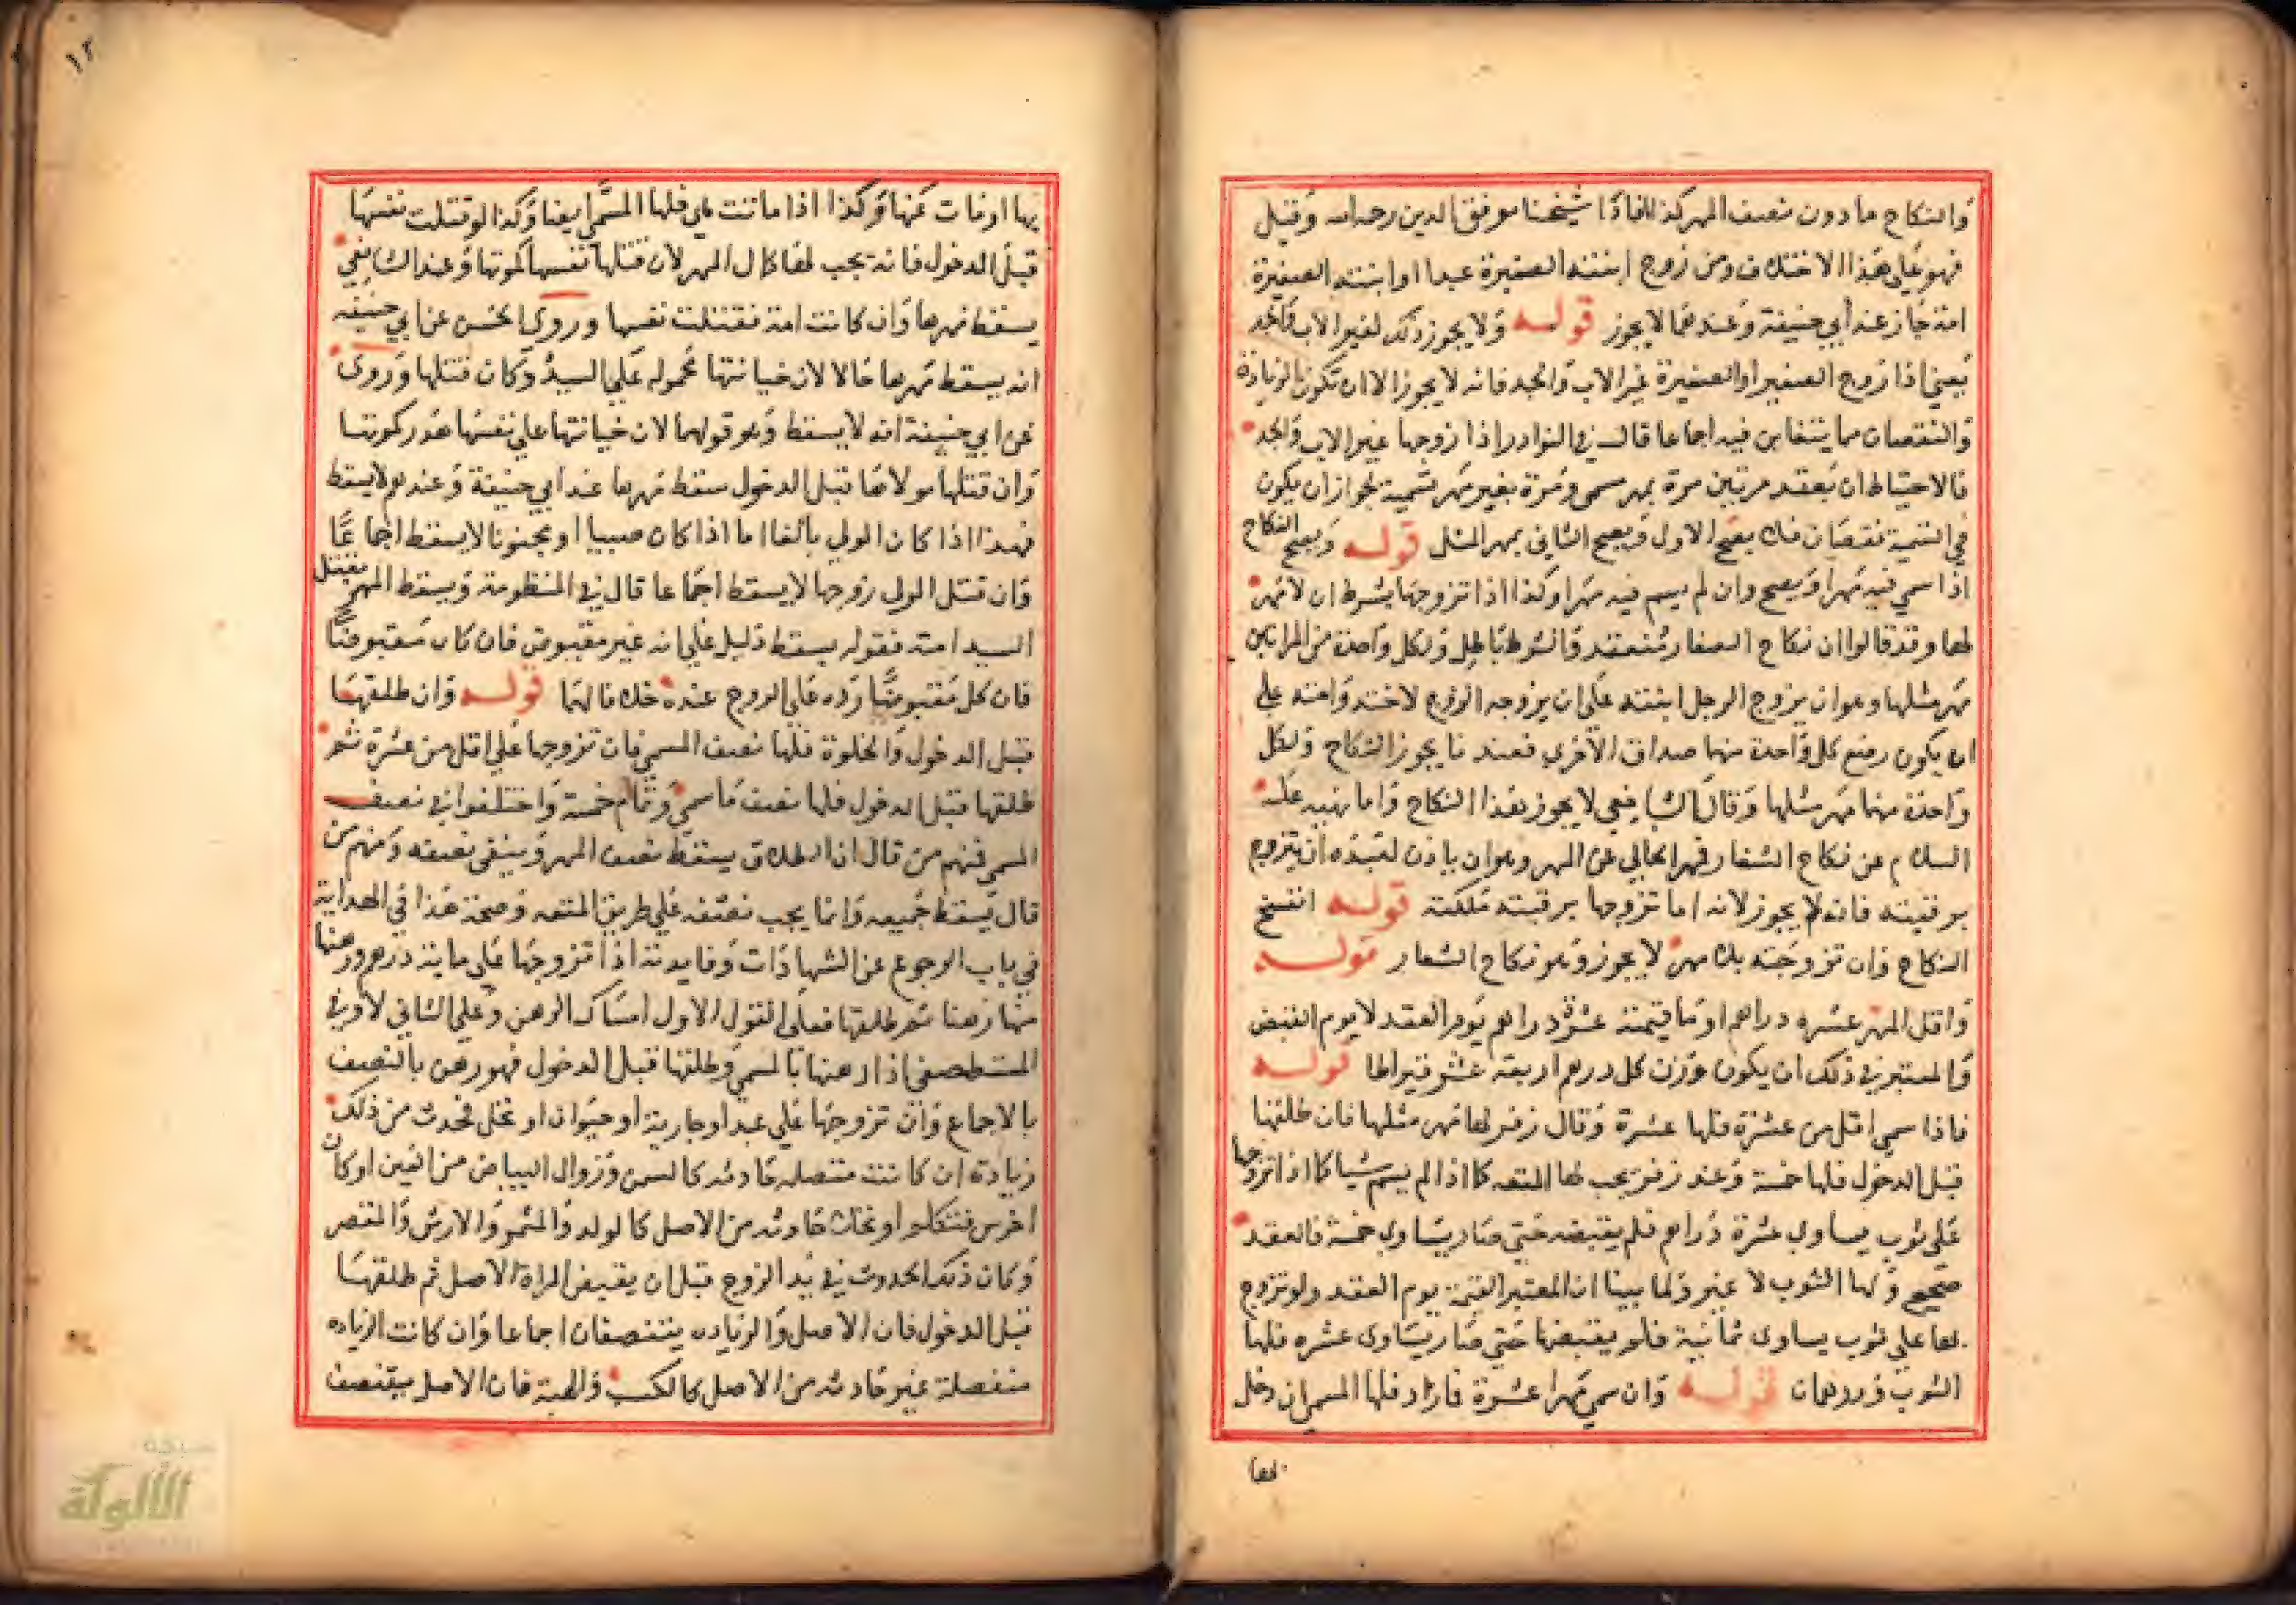 والنكاح ما دون نصف المهر كذا افادنا شيخنا موفق الدين رحمه الله وقيل
فهو على هذا الاختلاف ومن زوج ابنته الصغيرة عبدا او ابنته الصغيرة
امة جاز عند ابي حنيفة وعندهما لا يجوز قوله ولا يجوز ذلك لغير الاب والجد
يعني اذا زوج الصغير او الصغيرة غير الاب والجد فانه لا يجوز الا ان تكون الزيادة
والنقصان مما يتغابن فيه اجماعا قال في النوادر اذا زوجها غير الاب والجد
فالاحتياط ان يعقد مرتين مرة بمهر مسمى ومرة بغير مهر تسمية لجواز ان يكون
في التسمية نقصان فلا يصح الاول ويصح الثاني بمهر المثل قوله ويصح النكاح
اذا سمي فيه مهرا ويصح وان لم يسم فيه مهرا وكذا اذا تزوجها بشرط ان لا مهر
لها وقد قالوا ان نكاح الشغار منعقد والشرط باطل ولكل واحدة من المراتين
مهر مثلها وهو ان يزوج الرجل ابنته على ان يزوجه الزوج لاخته وامته على
ان يكون بضع كل واحدة منهما صداق الاخرى فعندنا يجوز النكاح ولكل
واحدة منهما مهر مثلها وقال الشافعي لا يجوز هذا النكاح واما نهيه عليه
السلام عن نكاح الشغار فهو الخالي عن المهر وهو ان ياذن لعبده ان يتزوج
برقبته فانه لا يجوز لانه اما تزوجها برقبته ملكته قوله انفسخ
النكاح وان تزوجته بلا مهر لا يجوز وهو نكاح الشغار قوله
واقل المهر عشره دراهم او ما قيمته عشرة دراهم يوم العقد لا يوم القبض
والمعتبر في ذلك ان يكون وزن كل درهم اربعة عشر قيراطا قوله
فاذا سمي اقل من عشرة فلها عشرة وقال زفر لها مهر مثلها فان طلقها
قبل الدخول فلها خمسة وعند زفر يجب لها المتعه كما اذا لم يسم شيا كما اذا تزوجها
على ثوب يساوي عشرة دراهم فلم يقبضه حتى صار يساوي خمسة فالعقد
صحيح ولها الثوب لا غير ولما بينا ان المعتبر القيمة يوم العقد ولو تزوج
لها على ثوب يساوى ثمانية فلم يقبضها حتى صار يساوى عشره فلها
الثوب ودرهمان قوله وان سمي مهرا عشرة فازاد فلها المسمى ان دخل
بها
١٢
بها او مات عنها وكذا اذا ماتت هي فلها المسمى ايضا وكذا لو قتلت نفسها
قبل الدخول فانه يجب لها كمال المهر لان قتلها نفسها كموتها وعند الشافعي
يسقط مهرها وان كانت امة فقتلت نفسها وروى الحسن عن ابي حنيفه
انه يسقط مهرها حالا لان خيانتها محموله على السيد وكان قتلها وروى
عن ابي حنيفة انه لا يسقط وهو قولهما لان خيانتها على نفسها هدر كموتها
وان قتلها مولاها قبل الدخول سقط مهرها عند ابي حنيفة وعندهم لا يسقط
فهذا اذا كان المولي بالغا اما اذا كان صبيا او مجنونا لا يسقط اجماعا
وان قتل المولى زوجها لا يسقط اجماعا قال في المنظومة ويسقط المهر بقتل
السيد امته فقوله يسقط دليل على انه غير مقبوض فان كان مقبوضا
فان كل مقبوضا رده على الزوج عنده خلافا لهما قوله وان طلقها
قبل الدخول والخلوة فلها نصف المسمى فان تزوجها على اقل من عشرة ثم
طلقها قبل الدخول فلها نصف ما سمى وتمام خمسة واختلفوا في نصف
المسمى فمنهم من قال ان الطلاق يسقط نصف المهر ويبقى نصفه ومنهم من
قال يسقط جميعه وانما يجب نصفه على طريق المتعه وصحة هذا في الهداية
في باب الرجوع عن الشهادات وفايدته اذا تزوجها على ماية درهم ورهنها
منها رهنا ثم طلقها فعلى القول الاول امساك الرهن وعلى الثاني لا وفي
المستصفى اذا رهنها بالمسمى وطلقها قبل الدخول فهو رهن بالنصف
بالاجماع وان تزوجها على عبد او جارية او حيوان او نخل فحدث من ذلك
زيادة ان كانت متصله حادثه كالسمن وزوال البياض من العين او كان
اخرس فتكلم او نخلت حادثه من الاصل كالولد والثمر والارش والعقر
وكان ذلك الحدوث في يد الزوج قبل ان يقبض المراة الاصل ثم طلقها
قبل الدخول فان الاصل والزياده يتنصفان اجماعا وان كانت الزياده
منفصلة غير حادثه من الاصل كالكسب والهبة فان الاصل يتنصف
شبكة
الألوكة